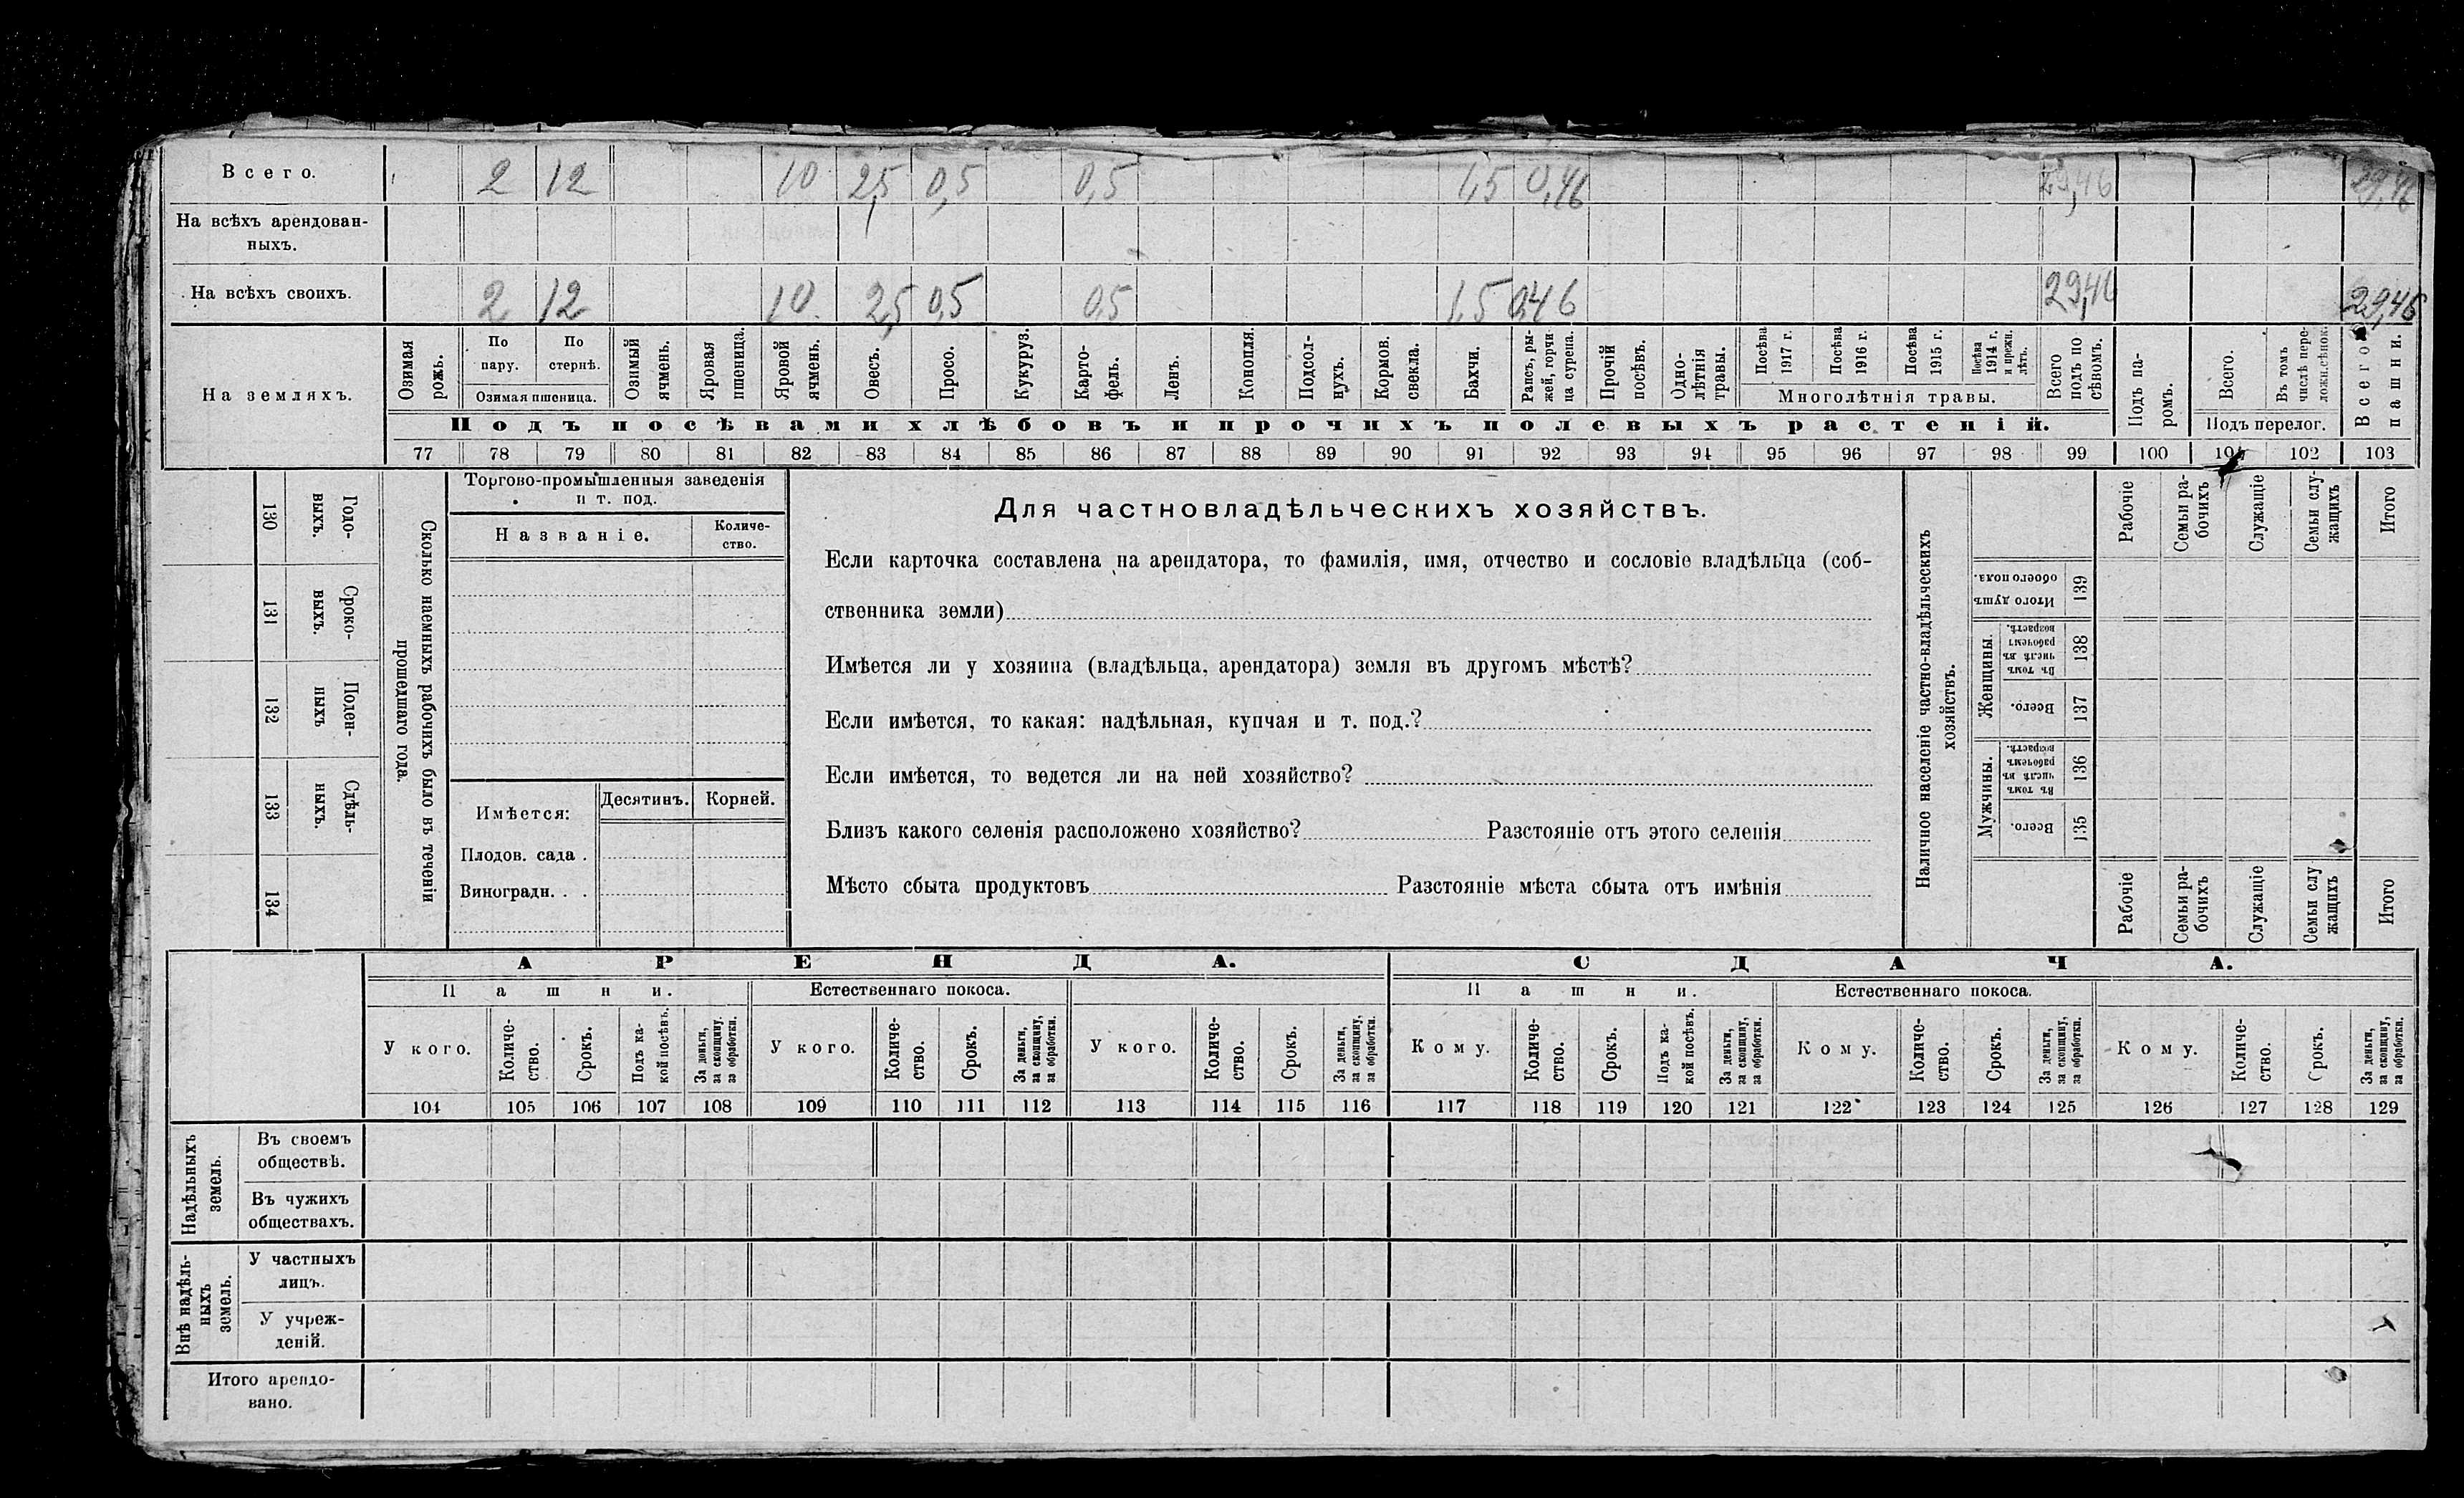 Всего. 2 12 10 2,5 0,5 0,5 1,5 0,46 29,46 29,46
На всѣхъ арендован-
ныхъ.
На всѣхъ своихъ. 2 12 10. 2,5 0,5 0,5 1,5 0,46 29,46 29,46
На земляхъ.
Озимая рожь.
По пару.
По стернѣ.
Озимая пшеница.
Озимый ячмень.
Яровая пшеница.
Яровой ячмень.
Овесъ.
Просо.
Кукуруз.
Карто-
фель.
Ленъ.
Конопля.
Подсол-
нухъ.
Кормов. свекла.
Бахчи.
Рапсъ, ры-
жей, горчи
ца сурепа.
Прочій посѣвъ.
Одно-
лѣтнія
травы.
Посѣва 1917 г.
Посѣва 1916 г.
Посѣва 1915 г.
Посѣва 1914 г. и прежн. лѣтъ.
Многолѣтнія травы.
Всего подъ по
сѣвомъ.
Подъ па-
ромъ.
Всего.
Въ томъ
числѣ пере-
Подъ перелог.
Всего пашни.
Подъ посѣвами хлѣбовъ и прочихъ полевыхъ растеній.
77 78 79 80 81 82 83 84 85 86 87 88 89 90 91 92 93 94 95 96 97 98 99 100 101 102 103
130 Годо-
выхъ.
131 Сроко-
выхъ.
132 Поден-
ныхъ
133 Сдѣль-
ныхъ.
134
Сколько наемныхъ рабочихъ было въ теченіи
прошедшаго года.
Торгово-промышленныя заведенія
и т. под.
Названіе. Количе-
ство.
Имѣется: Десятинъ. Корней.
Плодов. сада .
Виноградн. . .
Для частновладѣльческихъ хозяйствъ.
Если карточка составлена на арендатора, то фамилія, имя, отчество и сословіе владѣльца (соб-
ственника земли)
Имѣется ли у хозяина (владѣльца, арендатора) земля въ другомъ мѣстѣ?
Если имѣется, то какая: надѣльная, купчая и т. под.?
Если имѣется, то ведется ли на ней хозяйство?
Близъ какого селенія расположено хозяйство? Разстояніе отъ этого селенія
Мѣсто сбыта продуктовъ Разстояніе мѣста сбыта отъ имѣнія
Наличное населеніе частно-владѣльческихъ
хозяйствъ.
Рабочіе
Семьи ра-
бочихъ
Служащіе
Семьи слу-
жащихъ
Итого
Итого душъ
обоего пола.
139
Женщины.
Въ томъ
числѣ въ
рабочемъ
возрастѣ.
138
Всего.
137
Мужчины.
Въ томъ
числѣ въ
рабочемъ
возрастѣ.
136
Всего.
135
Рабочіе
Семьи ра-
бочихъ
Служащіе
Семьи слу
жащихъ
Итого
АРЕНДА. СДАЧА.
Пашни. Естественнаго покоса. Пашни. Естественнаго покоса.
У кого.
Количе-
ство.
Срокъ.
Подъ ка-
кой посѣвъ.
За деньги,
за скопщину,
за обработки.
У кого.
Количе-
ство.
Срокъ.
За деньги,
за скопщину,
за обработки.
У кого.
Количе-
ство.
Срокъ.
За деньги,
за скопщину,
за обработки.
Кому.
Количе-
ство.
Срокъ.
Подъ ка-
кой посѣвъ.
За деньги,
за скопщину,
за обработки.
Кому.
Количе-
ство.
Срокъ.
За деньги,
за скопщину,
за обработки.
Кому.
Количе-
ство.
Срокъ.
За деньги,
за скопщину,
за обработки.
104 105 106 107 108 109 110 111 112 113 114 115 116 117 118 119 120 121 122 123 124 125 126 127 128 129
Надѣльныхъ
земель.
Въ своемъ
обществѣ.
Въ чужихъ
обществахъ.
Внѣ надѣль-
ныхъ
земель.
У частныхъ
лицъ.
У учреж-
деній.
Итого арендо-
вано.